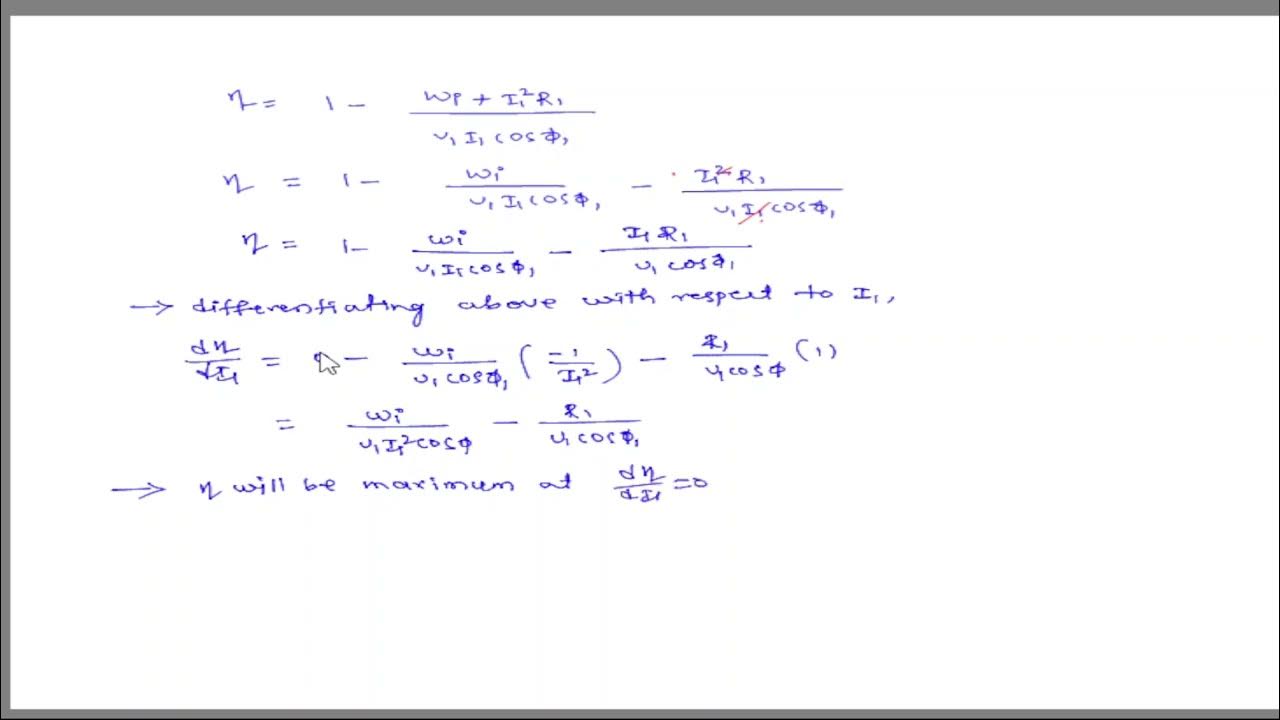 η = 1 - (Wi + I₁²R₁) / (V₁ I₁ cosφ₁)
η = 1 - Wi / (V₁ I₁ cosφ₁) - I₁² R₁ / (V₁ I₁ cosφ₁)
η = 1 - Wi / (V₁ I₁ cosφ₁) - I₁ R₁ / (V₁ cosφ₁)
→ differentiating above with respect to I₁,
dη/dI₁ = 0 - Wi / (V₁ cosφ₁) (-1 / I₁²) - R₁ / (V₁ cosφ) (1)
= Wi / (V₁ I₁² cosφ) - R₁ / (V₁ cosφ₁)
→ η will be maximum at dη/dI₁ = 0